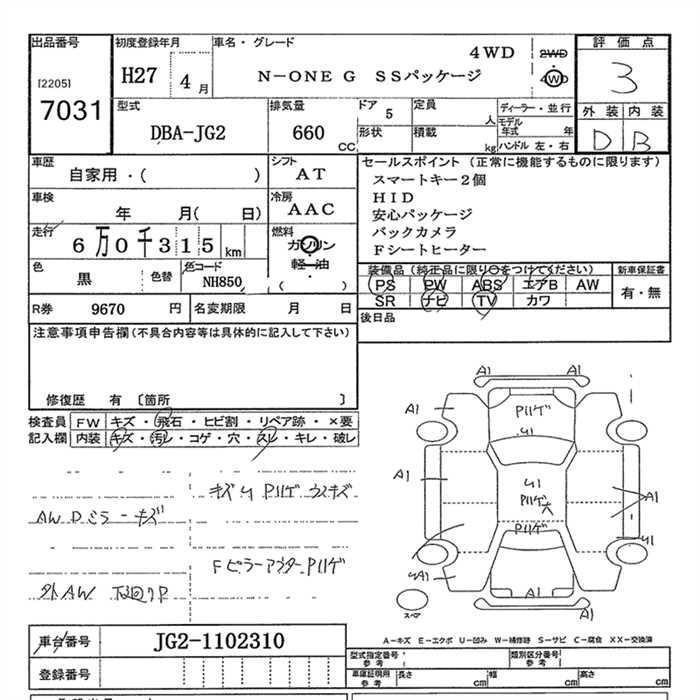 出品番号 初度登録年月 車名・グレード 4WD 2WD 4WD 評価点
[2205]
7031 H27 4月 N－ONE G SSパッケージ 3
型式 排気量 ドア 5 定員 人 ディーラー・並行 外装 内装
DBA-JG2 660 CC 形状 積載 kg モデル年式 年 ハンドル 左・右 D B
車歴 自家用・( ) シフト AT セールスポイント (正常に機能するものに限ります)
スマートキー2個
車検 年 月( 日) 冷房 AAC HID
安心パッケージ
走行 6万0千315km 燃料 ガソリン バックカメラ
軽油 Fシートヒーター
色 黒 色替 色コード NH850 ( ) 装備品(純正品に限り○をつけてください) 新車保証書
PS PW ABS エアB AW 有・無
R券 9670 円 名変期限 月 日 SR ナビ TV カワ
注意事項申告欄(不具合内容等は具体的に記入して下さい) 後日品
修復歴 有 〔箇所 〕
検査員 FW キズ・飛石・ヒビ割・リペア跡・×要
記入欄 内装 キズ・汚レ・コゲ・穴・スレ・キレ・破レ
A1
A1 Pハゲ A1
U1
A1 U1 A1
Pハゲ
Pハゲ U1
A1 A1
スペア A1
キズ Pハゲ
AW Dミラーキズ
Fピラーアウター Pハゲ
外AW
車台番号 JG2-1102310 A－キズ E－エクボ U－凹み W－補修跡 S－サビ C－腐食 XX－交換済
型式指定番号 参考 類別区分番号 参考
登録番号 車庫証明用 参考 長さ cm 幅 cm 高さ cm